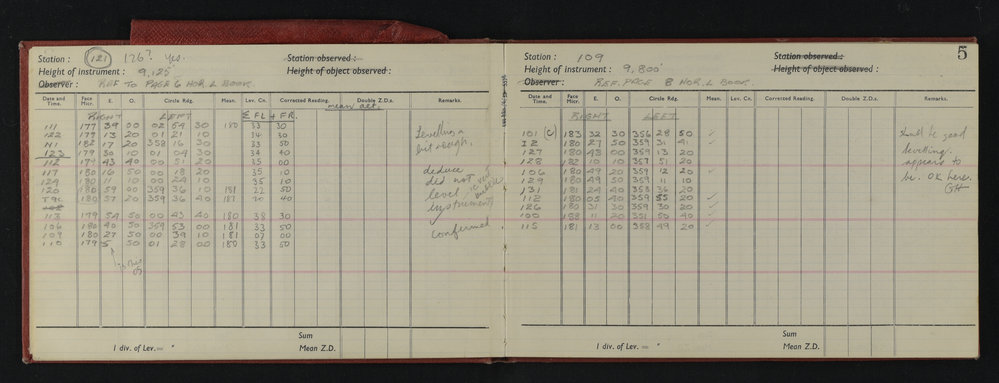 Station : 121 126? yes.
Station observed :
Height of instrument : 9,125
Height of object observed :
Observer : REF TO PAGE 6 HOR. L BOOK
Date and Time. Face Micr. E. O. Circle Rdg. Mean. Lev. Cn. Corrected Reading. Double Z.D.s. Remarks.
mean alt.
RIGHT LEFT Σ FL + FR.
111 177 39 00 02 54 30 180 33 30
122 179 13 20 01 21 10 34 30
N1 182 17 20 358 16 30 33 50
123 179 30 10 01 04 30 34 40
112 179 43 40 00 51 20 35 00
117 180 16 50 00 18 20 35 10
124 180 11 00 24 10 35 10
120 180 59 00 359 36 10 181 22 50
T9C 180 57 20 359 36 40 187 20 40
108
113 179 54 50 00 43 40 180 38 30
106 180 40 50 359 53 00 181 33 50
109 180 27 50 00 39 10 181 07 00
110 179 5 50 01 28 00 180 33 50
Levelling a
bit rough.
deduce
did not
level
instrument
confirmed
Sum
1 div. of Lev. = " Mean Z.D.
5
Station : 109
Station observed :
Height of instrument : 9,800
Height of object observed :
Observer : REF. PAGE 8 HOR. L BOOK.
Date and Time. Face Micr. E. O. Circle Rdg. Mean. Lev. Cn. Corrected Reading. Double Z.D.s. Remarks.
RIGHT LEFT
101 (C) 183 32 30 356 28 50 ✓
I2 180 27 50 359 31 41 ✓
127 180 48 00 359 13 20
128 182 10 10 357 51 20
106 180 49 20 359 12 20 ✓
129 180 49 50 359 11 10
131 181 24 40 358 36 20
112 180 05 40 359 55 20 ✓
126 180 31 30 359 30 20 ✓
100 188 11 20 351 50 40 ✓
115 181 13 00 358 49 20
should be good
levelling.
appears to
be OK here.
GH
Sum
1 div. of Lev. = " Mean Z.D.